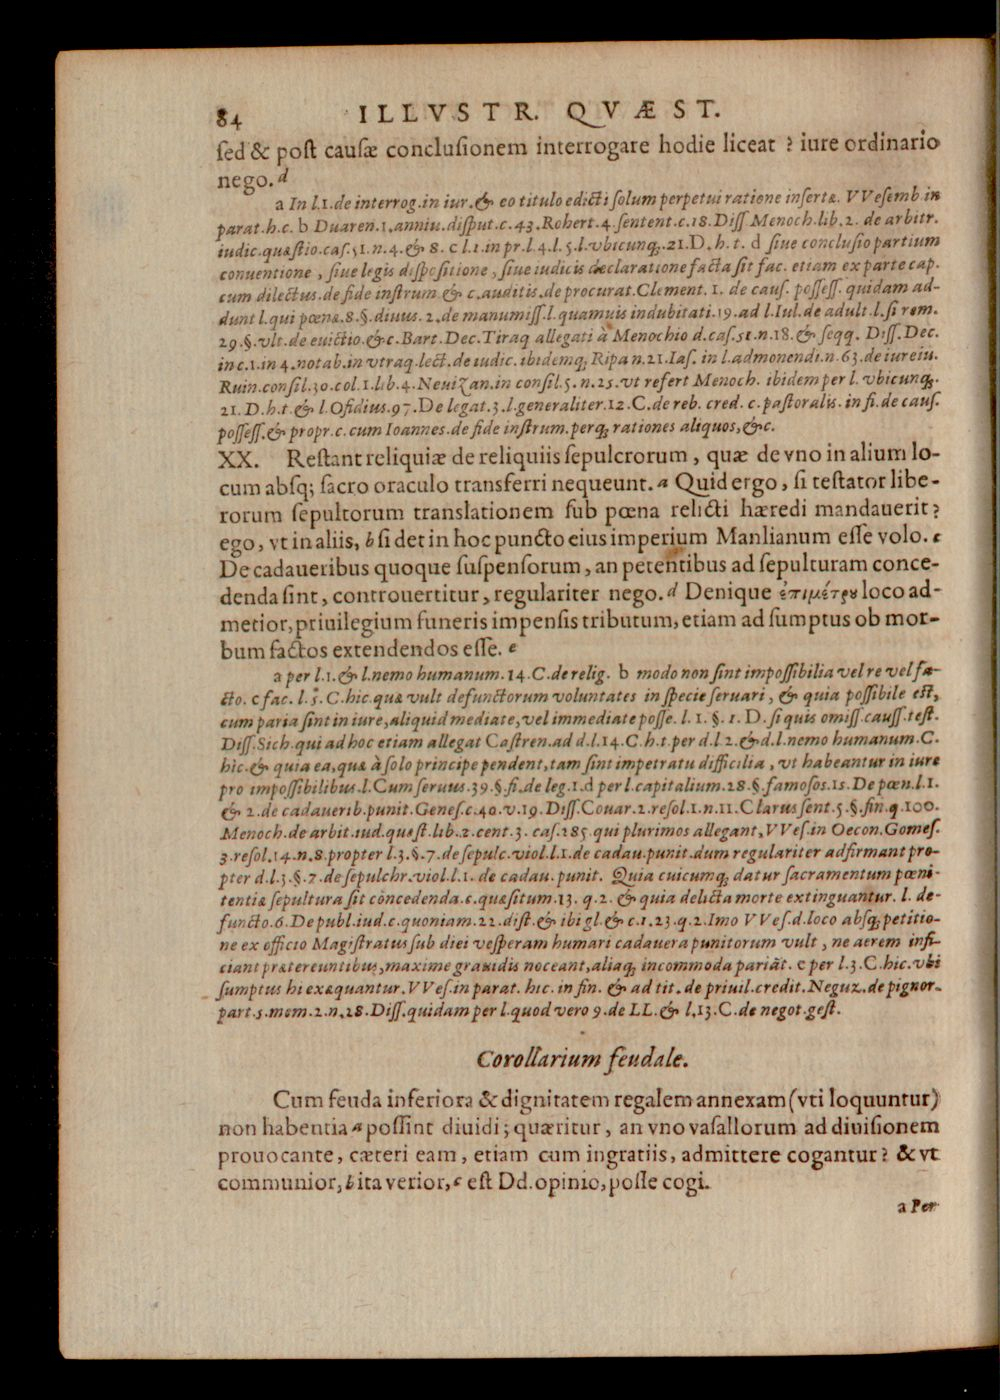 84 ILLVSTR. QVÆST.
ſed & poſt cauſæ concluſionem interrogare hodie liceat ? iure ordinario
nego. d
a In l.1.de interrog.in iur.& eo titulo edicti ſolum perpetui ratione inſertæ. VVeſemb.in
parat.h.c. b Duaren.1.anniu.diſput.c.43.Robert.4.ſentent.c.18.Diſſ.Menoch.lib.2. de arbitr.
iudic.quæſtio.caſ.51.n.4.& 8. c l.1.in pr.l.4.l.5.l.vbicunq;.21.D.h.t. d ſiue concluſio partium
conuentione, ſiue legis diſpoſitione, ſiue iudicis declaratione facta ſit fac. etiam ex parte cap.
cum dilectus.de fide inſtrum.& c.auditis.de procurat.Clement. 1. de cauſ. poſſeſſ. quidam ad-
dunt l.qui pœnæ.8.§.diuus. 2.de manumiſſ.l.quamuis indubitati.19.ad l.Iul.de adult.l.ſi rem.
29.§.vlt.de euictio.&c.Bart.Dec.Tiraq allegati à Menochio d.caſ.51.n.18.& ſeqq. Diſſ.Dec.
in c.1.in 4.notab.in vtraq.lect.de iudic.ibidemq; Ripa n.21.Iaſ. in l.admonendi.n.63.de iureiu.
Ruin.conſil.30.col.1.lib.4.Neuizan.in conſil.5.n.25.vt refert Menoch. ibidem per l. vbicunq;.
21.D.h.t.& l.Ofidius.97.De legat.3.l.generaliter.12.C.de reb. cred. c.paſtoralis.in fi.de cauſ.
poſſeſſ.& propr.c.cum Ioannes.de fide inſtrum.perq; rationes aliquos,&c.
XX. Reſtant reliquiæ de reliquiis ſepulcrorum, quæ de vno in alium lo-
cum abſq; ſacro oraculo transferri nequeunt. a Quid ergo, ſi teſtator libe-
rorum ſepultorum translationem ſub pœna relicti hæredi mandauerit?
ego, vt in aliis, b ſi det in hoc puncto eius imperium Manlianum eſſe volo. c
De cadaueribus quoque ſuſpenſorum, an petentibus ad ſepulturam conce-
denda ſint, controuertitur, regulariter nego. d Denique ἐπιμέτρου loco ad-
metior, priuilegium funeris impenſis tributum, etiam ad ſumptus ob mor-
bum factos extendendos eſſe. e
a per l.1.& l.nemo humanum.14.C.de relig. b modo non ſint impoſſibilia vel re vel fa-
cto. c fac. l.5.C.hic.quæ vult defunctorum voluntates in ſpecie ſeruari, & quia poſſibile eſt,
cum paria ſint in iure, aliquid mediate, vel immediate poſſe. l. 1. §. 1. D. ſi quis omiſſ.cauſſ.teſt.
Diſſ.Sich.qui ad hoc etiam allegat Caſtren.ad d.l.14.C.h.t.per d.l 2.& d.l.nemo humanum.C.
hic.& quia ea, quæ à ſolo principe pendent, tam ſint impetratu difficilia, vt habeantur in iure
pro impoſſibilibus.l.Cum ſeruus.39.§.fi.de leg.1.d per l.capitalium.28.§.famoſos.15.De pœn.l.1.
& 2.de cadauerib.punit.Geneſ.c.40.v.19.Diſſ.Couar.2.reſol.1.n.11.Clarus ſent.5.§.fin.q.100.
Menoch.de arbit.iud.quæſt.lib.2.cent.3. caſ.285.qui plurimos allegant, VVeſ.in Oecon.Gomeſ.
3.reſol.14.n.8.propter l.3.§.7.de ſepulc.viol.l.1.de cadau.punit.dum regulariter adfirmant pro-
pter d.l.3.§.7.de ſepulchr.viol.l.1. de cadau.punit. Quia cuicumq; datur ſacramentum pœni-
tentiæ ſepultura ſit concedenda.c.quæſitum.13. q.2. & quia delicta morte extinguantur. l. de-
functo.6.De publ.iud.c.quoniam.22.diſt.& ibi gl.& c.1.23.q.2.Imo VVeſ.d.loco abſq; petitio-
ne ex officio Magiſtratus ſub diei veſperam humari cadauera punitorum vult, ne aerem infi-
ciant prætereuntibus, maxime grauidis noceant, aliaq; incommoda pariāt. e per l.3.C.hic.vbi
ſumptus hi exæquantur.VVeſ.in parat. hic. in fin. & ad tit. de priuil.credit.Neguz.de pignor.
part.5.mem.2.n.28.Diſſ.quidam per l.quod vero 9.de LL.& l.13.C.de negot.geſt.
Corollarium feudale.
Cum feuda inferiora & dignitatem regalem annexam (vti loquuntur)
non habentia a poſſint diuidi; quæritur, an vno vaſallorum ad diuiſionem
prouocante, cæteri eam, etiam cum ingratiis, admittere cogantur? & vt
communior, b ita verior, c eſt Dd. opinio, poſſe cogi.
a Per